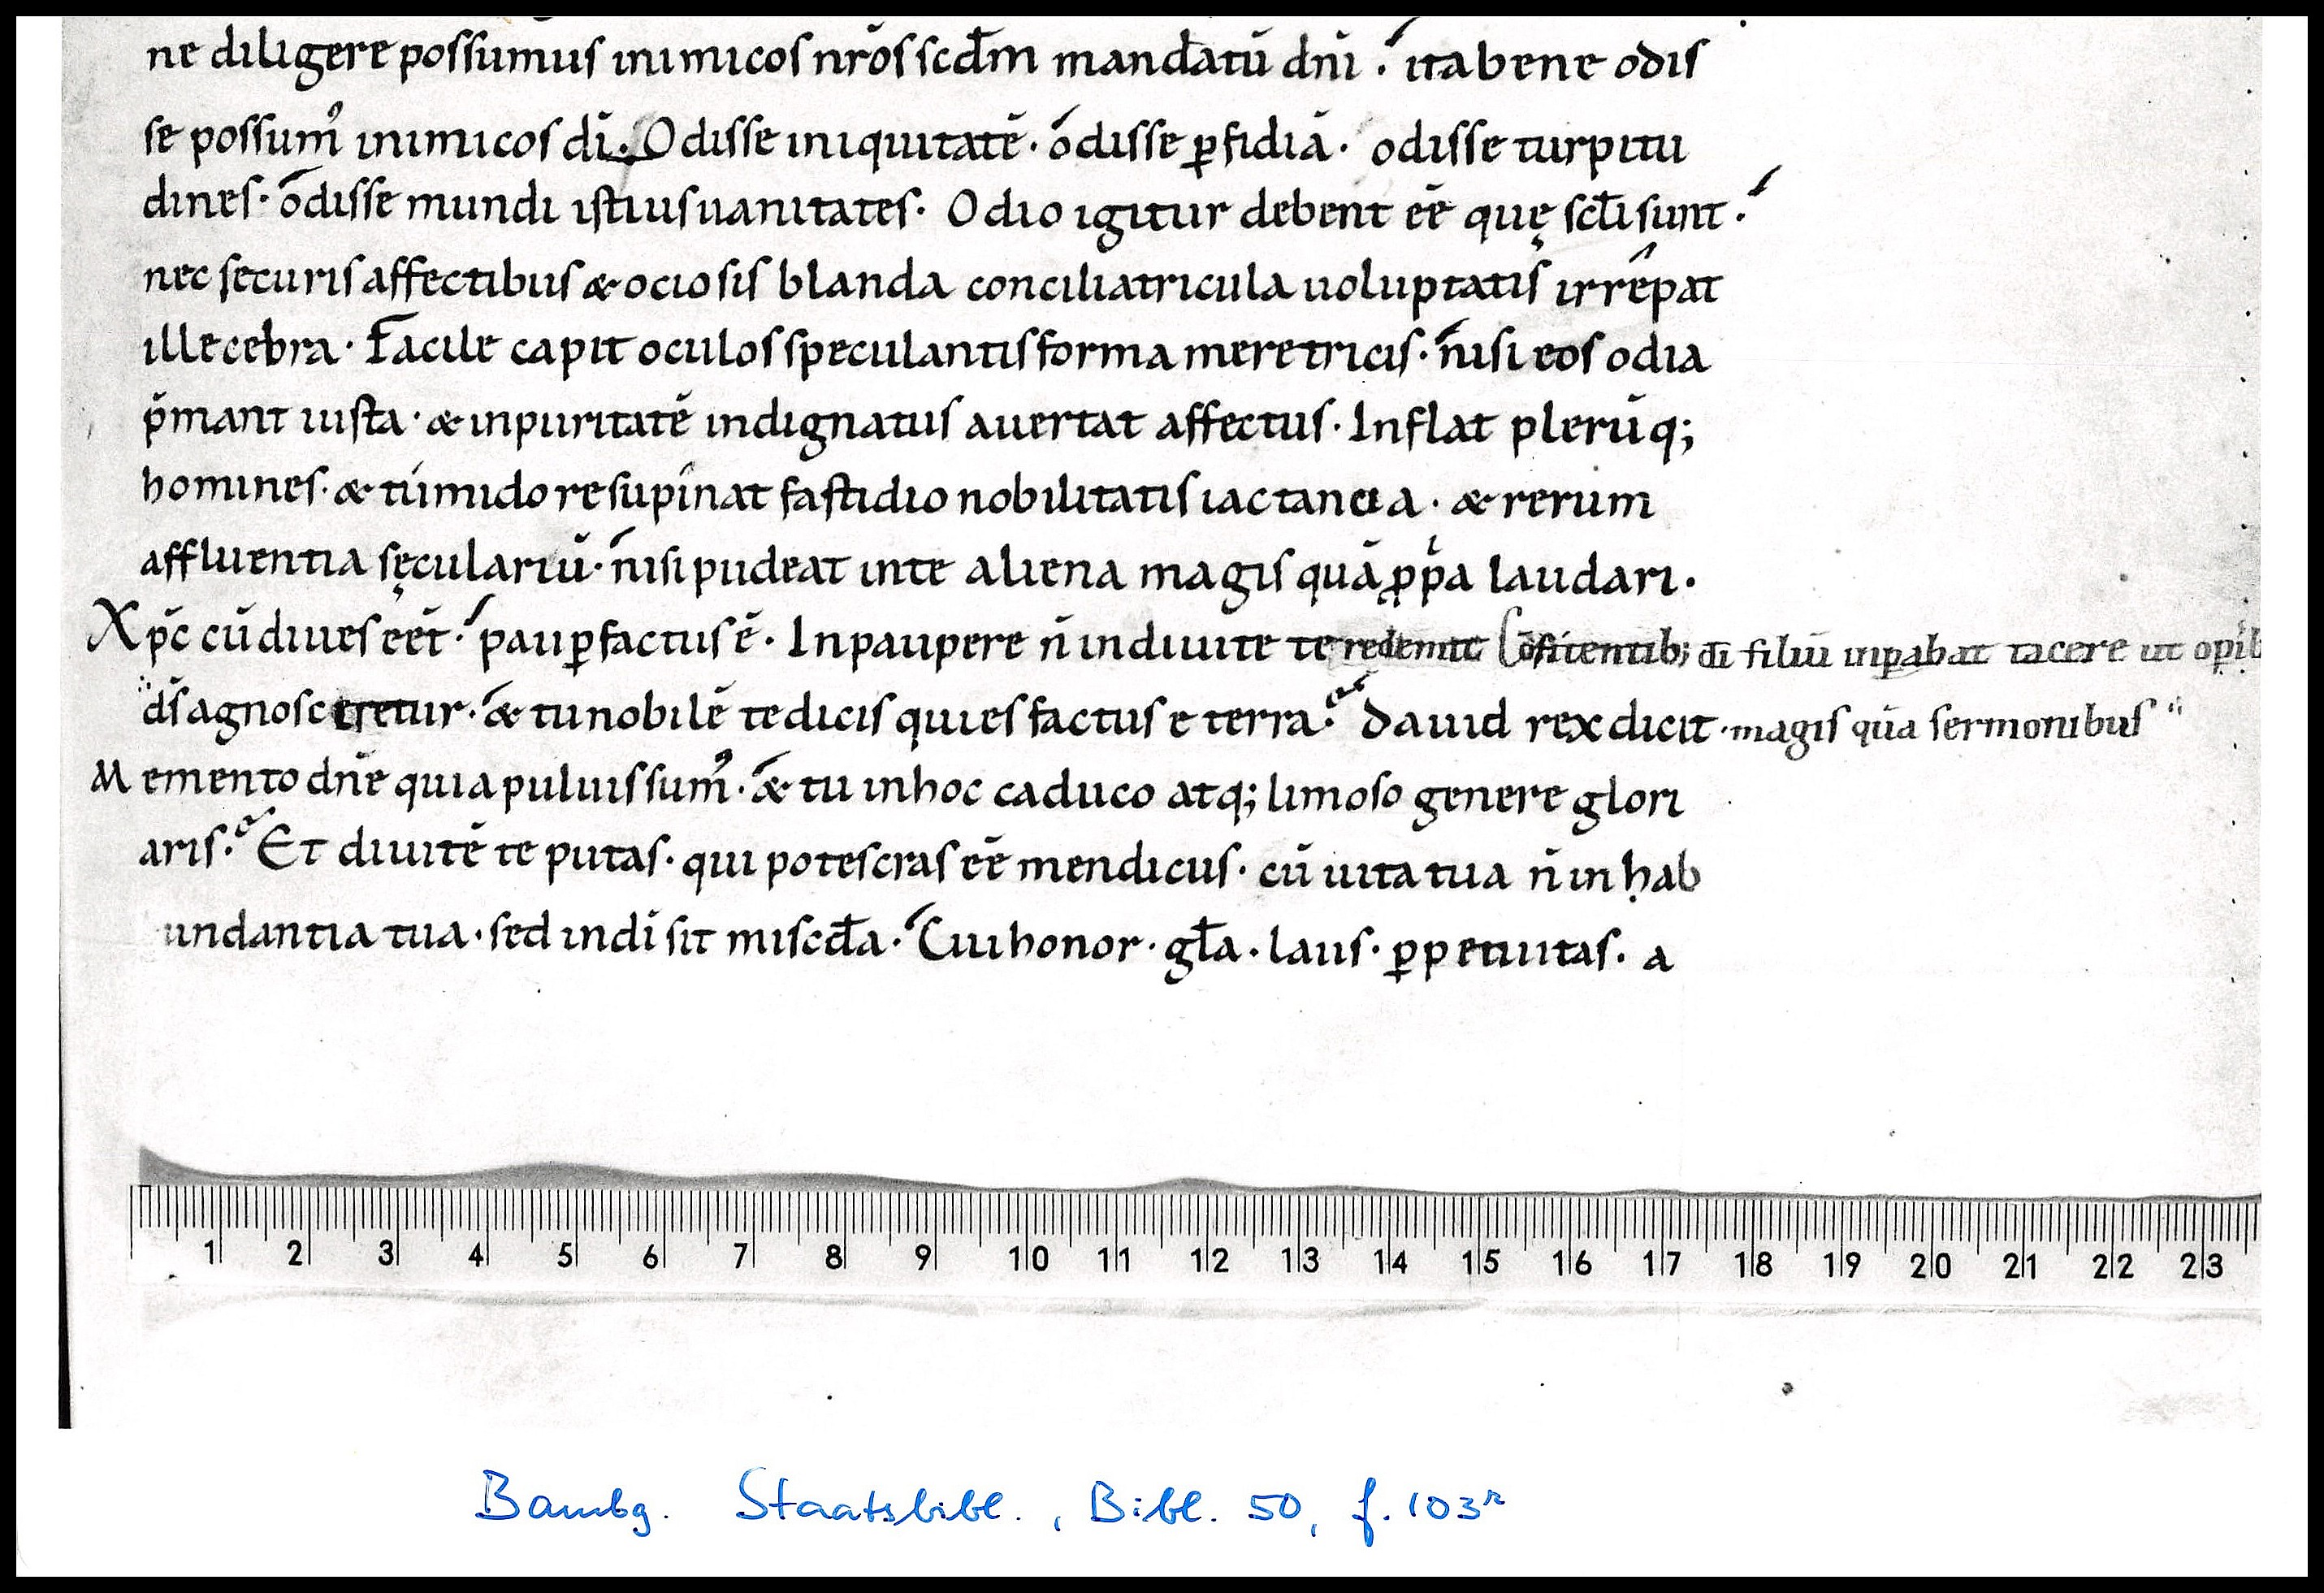 ne diligere possumus inimicos nr̄os scd̄m mandatū dn̄i · ita bene odis
se possum᾽ inimicos dī. Odisse iniquitatē · odisse ꝑfidiā · odisse turpitu
dines · odisse mundi istius uanitates. Odio igitur debent eē quę scl̄i sunt ·
nec securis affectibus & ociosis blanda conciliatricula uoluptatis irrêpat
illecebra · Facile capit oculos speculantis forma meretricis · nisi eos odia
p̄mant iusta · & inpuritatē indignatus auertat affectus · Inflat plerūq;
homines · & túmido resupînat fastidio nobilitatis iactancia · & rerum
affluentia sęculariū · nisi pudeat in te aliena magis quā ꝓpͥa laudari.
Xp̄c cū diues eēt · pauꝑ factus ē · In paupere n̄ in diuite te redemit cōfitentib; dī filiū inꝑabat tacere ut
ds̄ agnosceretur · & tu nobilē te dicis qui es factus e terra · Dauid rex dicit · magis quā sermonibus
Memento dn̄e quia puluis sum᾽ · & tu in hoc caduco atq; limoso genere glori
aris · Et diuitē te putas · qui potes cras eē mendicus · cū uita tua n̄ in hab
undantia tua · sed in dī sit miscd̄a · Cui honor · gl̄a · laus · ꝑpetuitas · a
1 2 3 4 5 6 7 8 9 10 11 12 13 14 15 16 17 18 19 20 21 22 23
Bambg. Staatsbibl., Bibl. 50, f. 103r